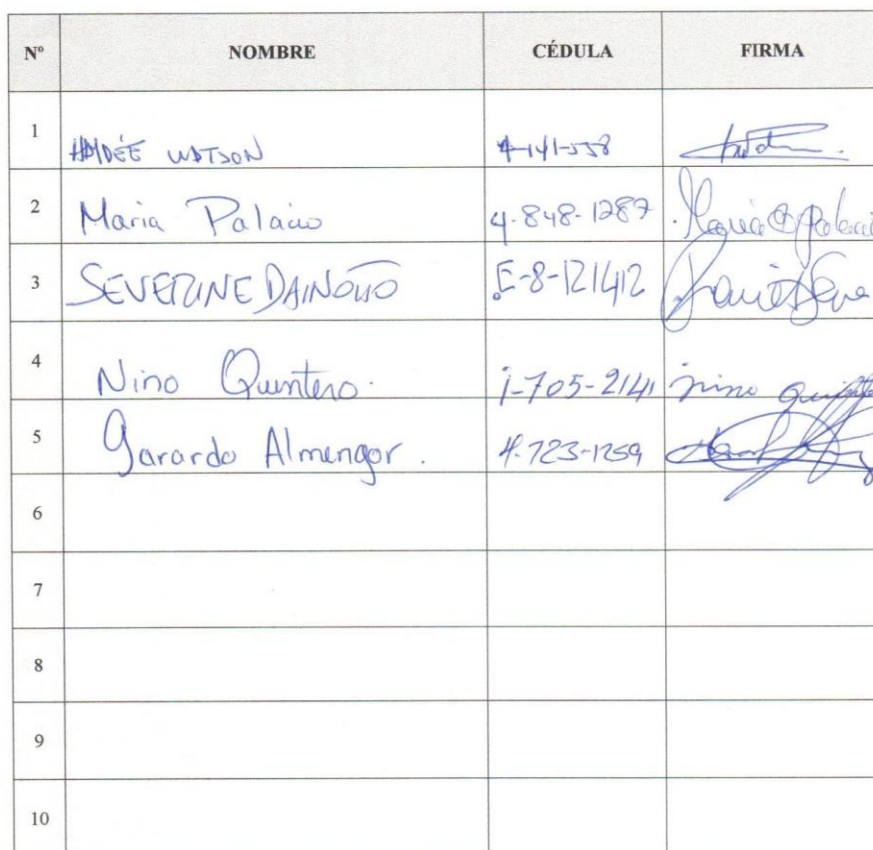 Nº NOMBRE CÉDULA FIRMA
1 HAIDÉE WATSON 4-141-558
2 Maria Palacio 4-848-1287 Maria Palacio
3 SEVERINE E-8-121412
4 Nino Quintero. 1-705-2141 nino Quintero
5 Gerardo Almengor. 4-723-1259
6
7
8
9
10